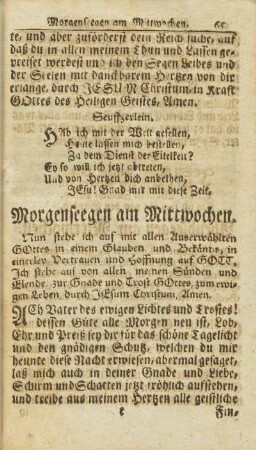 Morgenseegen am Mittwochen. 65
te, und aber zuförderst dein Reich suche, auf
daß du in allen meinem Thun und Lassen ge-
preiset werdest und ich den Segen Leibes und
der Seelen mit danckbarem Hertzen von dir
erlange, durch JESUN Christum, in Kraft
GOttes des Heiligen Geistes, Amen.
Seufftzerlein.
HAb ich mit der Welt gesellen,
Heute lassen mich bestellen,
Zu dem Dienst der Eitelkeit?
Ey so will ich jetzt abtreten,
Und von Hertzen dich anbethen,
JEsu! Gnad mir mit diese Zeit.
Morgenseegen am Mittwochen.
Nun stehe ich auf mit allen Auserwählten
GOttes in einem Glauben und Bekänt-, in
einerley Vertrauen und Hoffnung auf GOTT.
Ich stehe auf von allen meinen Sünden und
Elende, zur Gnade und Trost GOttes, zum ewi-
gen Leben, durch JEsum Christum, Amen.
ACh Vater des ewigen Lichtes und Trostes!
dessen Güte alle Morgen neu ist, Lob,
Ehr und Preiß sey dir für das schöne Tagelicht
und den gnädigen Schutz, welchen du mir
heunte diese Nacht erwiesen, abermal gesaget,
laß mich auch in deiner Gnade und Liebe,
Schirm und Schatten jetzt frölich aufstehen,
und treibe aus meinem Hertzen alle geistliche
e Fin-